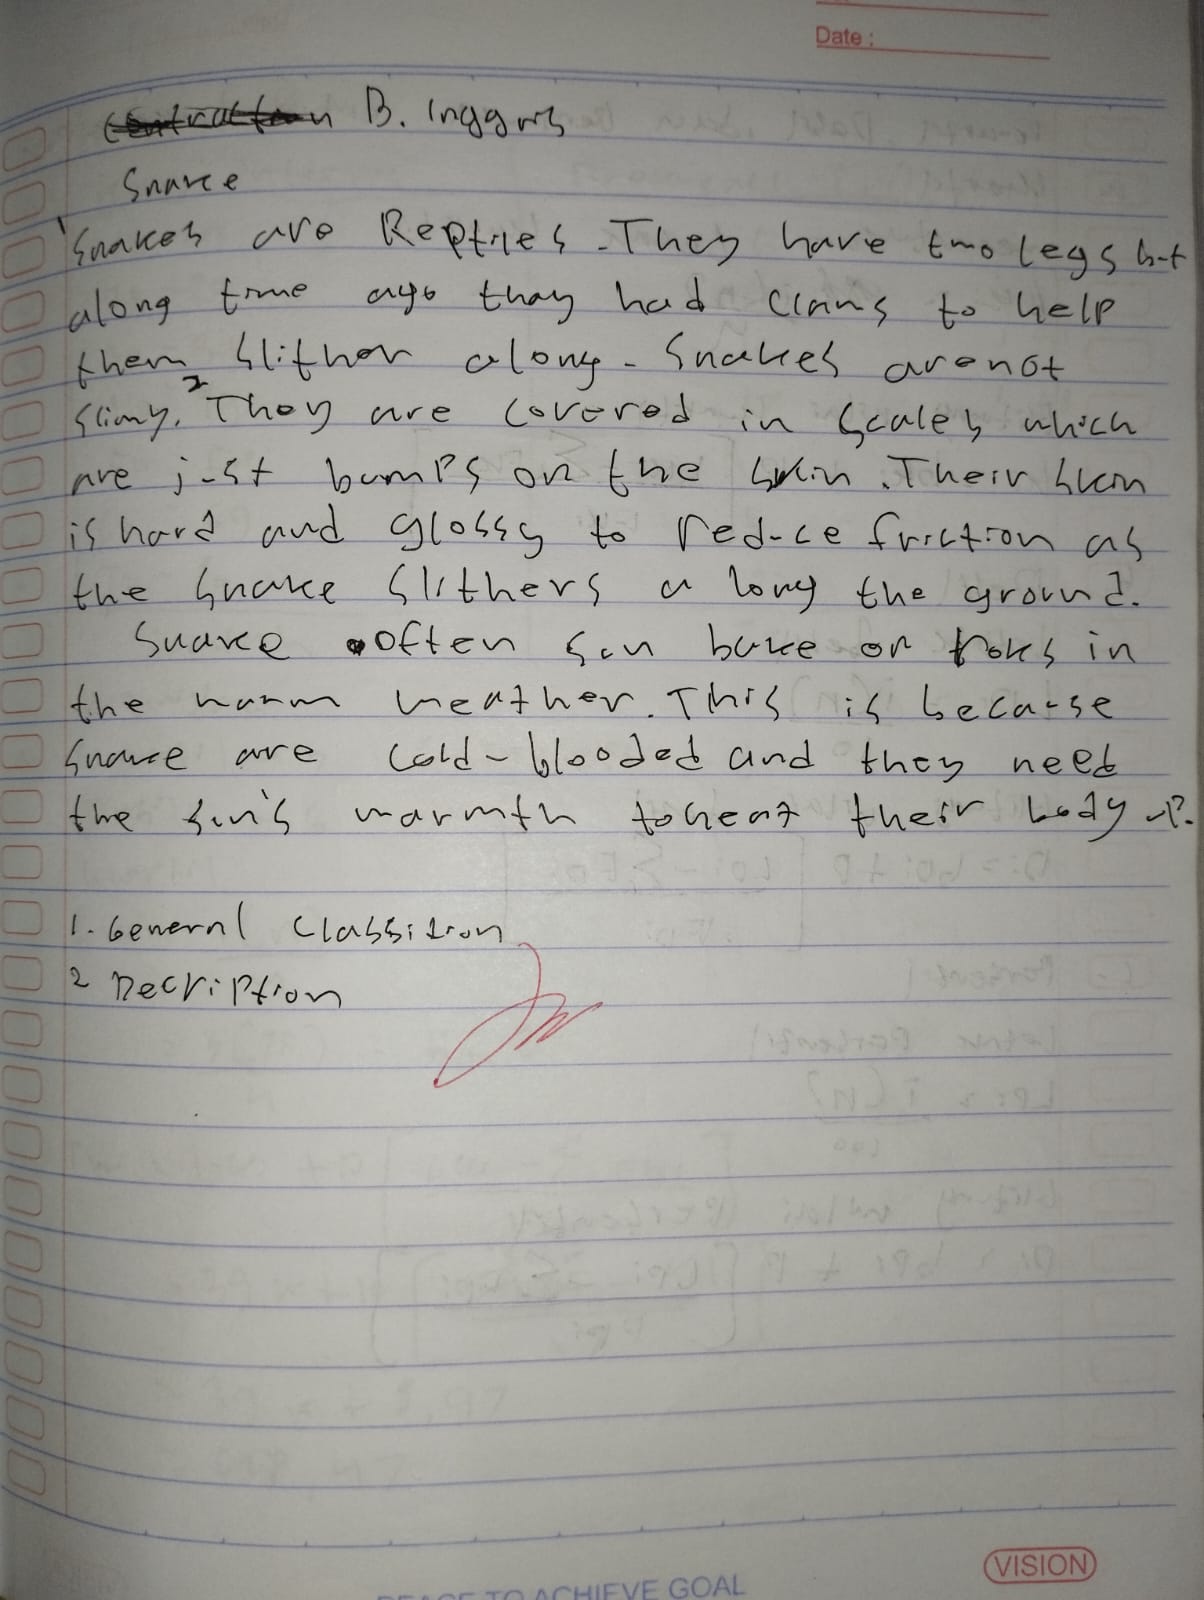 Date :
B. Inggris
Snake
1 Snakes are Reptiles. They have two legs but
along time ago they had claws to help
them slither along. Snakes are not
slimy. 2 They are covered in scales which
are just bumps on the skin. Their skin
is hard and glossy to reduce friction as
the snake slithers a long the ground.
Snake often sun bake on roks in
the warm weather. This is because
snake are cold-blooded and they need
the sun's warmth to heat their body up.
1. General Classition
2 Decription
VISION
TO ACHIEVE GOAL